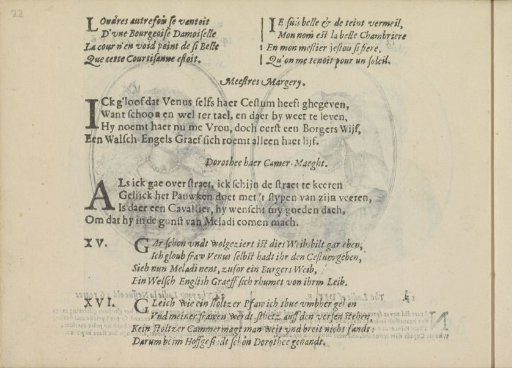 22
Londres autrefois se vantoit
D'vne Bourgeoise Damoiselle
La cour n'en void point de si Belle
Que cette Courtisanne estoit.
IE suis belle & de teint vermeil,
Mon nom est la belle Chambriere
En mon mestier jestou si fiere,
Qu'on me tenoit pour un soleil.
Meestres Margery.
ICk g'loof dat Venus selfs haer Cestum heeft ghegeven,
Want schoon en wel ter tael, en daer by weet te leven,
Hy noemt haer nu me Vrou, doch eerst een Borgers Wijf,
Een Walsch-Engels Graef sich roemt alleen haer lijf.
Dorothee haer Camer-Maeght.
ALs ick gae over straet, ick schijn de straet te keeren
Gelijck het Pauwken doet met 't slypen van zijn veeren,
Is daer een Cavallier, hy wenscht my goeden dach,
Om dat hy in de gonst van Meladi comen mach.
XV. GAr schon vndt wolgeziert ist dies Weibsbilt gar eben,
Ich gloub fraw Venus selbst hadt ihr den Cestum geben,
Sieh nun Meladi nent, zufor ein Burgers Weib,
Ein Welsch English Graeff sich rhumet von ihrem Leib.
XVI. GLeich wie ein stoltzer Pfaw ich thue vmbher gehn
Vnd meiner frawen werdt stehtz auff den versen stehen,
Kein stoltzer Cammermagt man weit vnd breit nicht fandt:
Darum beim Hoffgesindt schon Dorothee genandt.